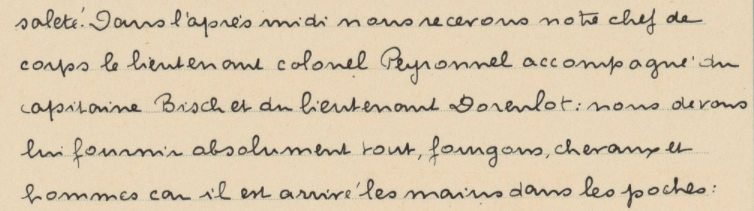 saleté. Dans l'après midi nous recevons notre chef de
corps le lieutenant colonel Peyronnel accompagné du
capitaine Bisch et du lieutenant Dorenlot : nous devons
lui fournir absolument tout, fourgons, chevaux et
hommes car il est arrivé les mains dans les poches :